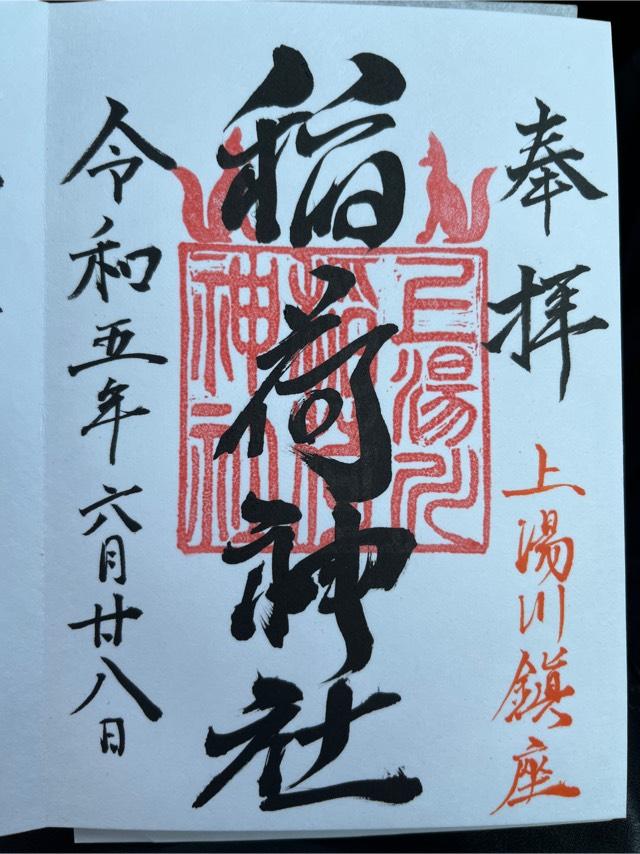 奉拝
上湯川鎮座
稲荷神社
上湯川
稲荷
神社
令和五年六月廿八日